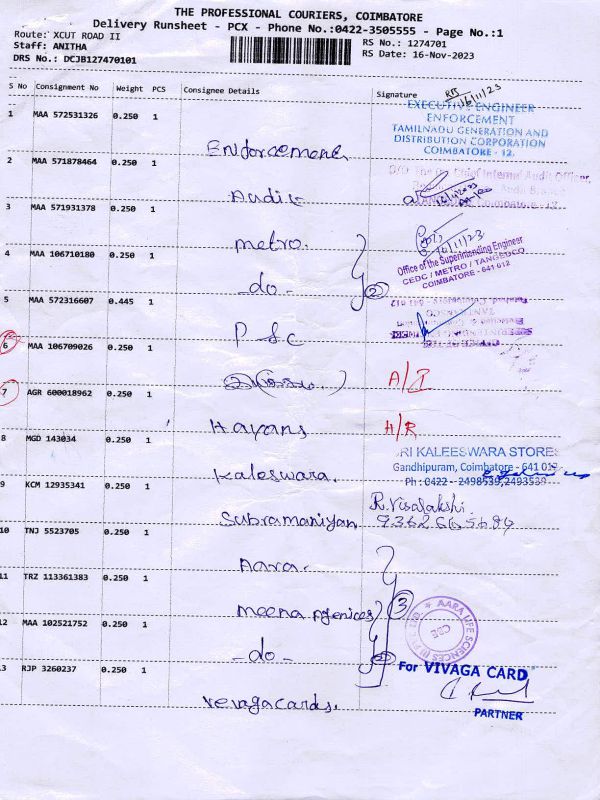 THE PROFESSIONAL COURIERS, COIMBATORE
Delivery Runsheet - PCX - Phone No.:0422-3505555 - Page No.:1
Route: XCUT ROAD II
Staff: ANITHA
DRS No.: DCJB127470101
RS No.: 1274701
RS Date: 16-Nov-2023
S No Consignment No Weight PCS Consignee Details Signature
16/11/23
1 MAA 572531326 0.250 1
EXECUTIVE ENGINEER
ENFORCEMENT
TAMILNADU GENERATION AND
DISTRIBUTION CORPORATION
COIMBATORE - 12.
Enforcement
2 MAA 571878464 0.250 1
Audit
3 MAA 571931378 0.250 1
metro.
16/11/23.
4 MAA 106710180 0.250 1
Office of the Superintending Engineer
CEDC / METRO / TANGEDCO
COIMBATORE - 641 012
-do- 2
5 MAA 572316607 0.445 1
P S C
6 MAA 106709026 0.250 1
A/I
7 AGR 600018962 0.250 1
Hayans H/R
8 MGD 143034 0.250 1
SRI KALEESWARA STORES
Gandhipuram, Coimbatore - 641 012
Ph : 0422 - 2498539,2493539
Kaleswara.
9 KCM 12935341 0.250 1
Subramaniyan R. Visalakshi.
10 TNJ 5523705 0.250 1
Aara.
11 TRZ 113361383 0.250 1
meena Agenices 3
AARA LIFE SCIENCES
CBE
12 MAA 102521752 0.250 1
-do- 2
13 RJP 3260237 0.250 1
For VIVAGA CARD
PARTNER
Vevagacards.